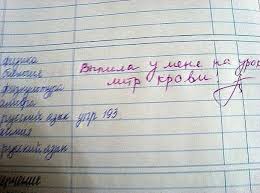 физика
Выпила у меня на урок
литр крови!
физкультура
алгебра
русский язык упр 193
химия
русский язык